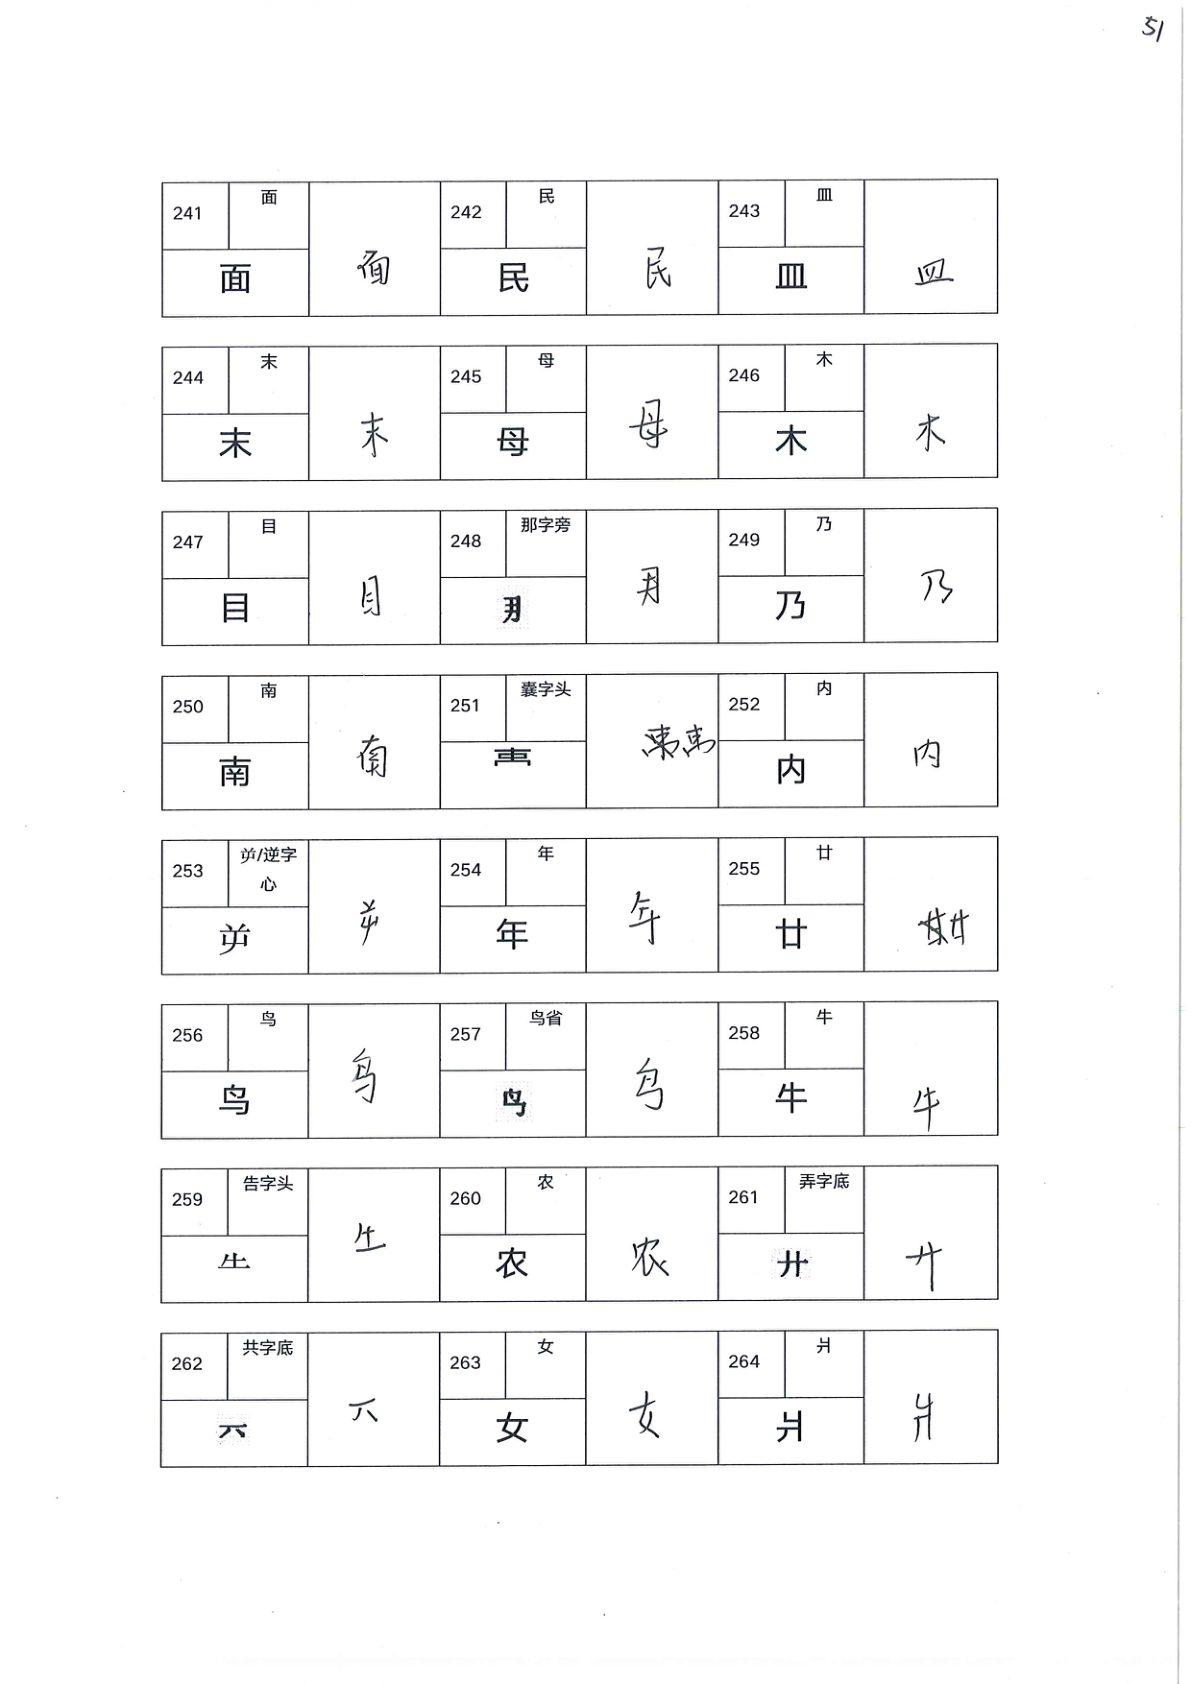 51
241 面 面 面 242 民 民 民 243 皿 皿 皿
244 末 末 末 245 母 母 母 246 木 木 木
247 目 目 目 248 那字旁 249 乃 乃 乃
250 南 南 南 251 囊字头 252 内 内 内
253 屰/逆字
心 屰 屰 254 年 年 年 255 廿 廿 廿
256 鸟 鸟 鸟 257 鸟省 258 牛 牛 牛
259 告字头 260 农 农 农 261 弄字底 廾 廾
262 共字底 263 女 女 女 264 爿 爿 爿